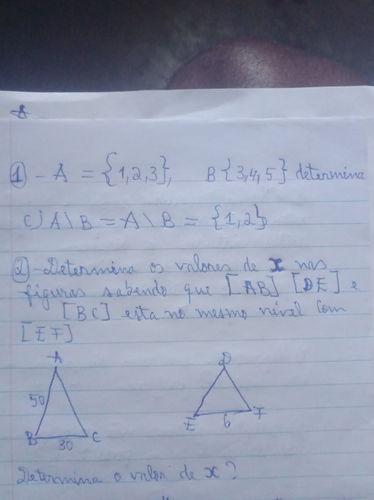 A
1 - A = {1,2,3}, B{3,4,5} determina
C) A\B = A \ B = {1,2}
2 - Determina os valores de x nas
figuras sabendo que [AB] [DE] e
[BC] esta no mesmo nível com
[EF]
A
D
50
B
30
C
E
6
F
Determina o valor de x?